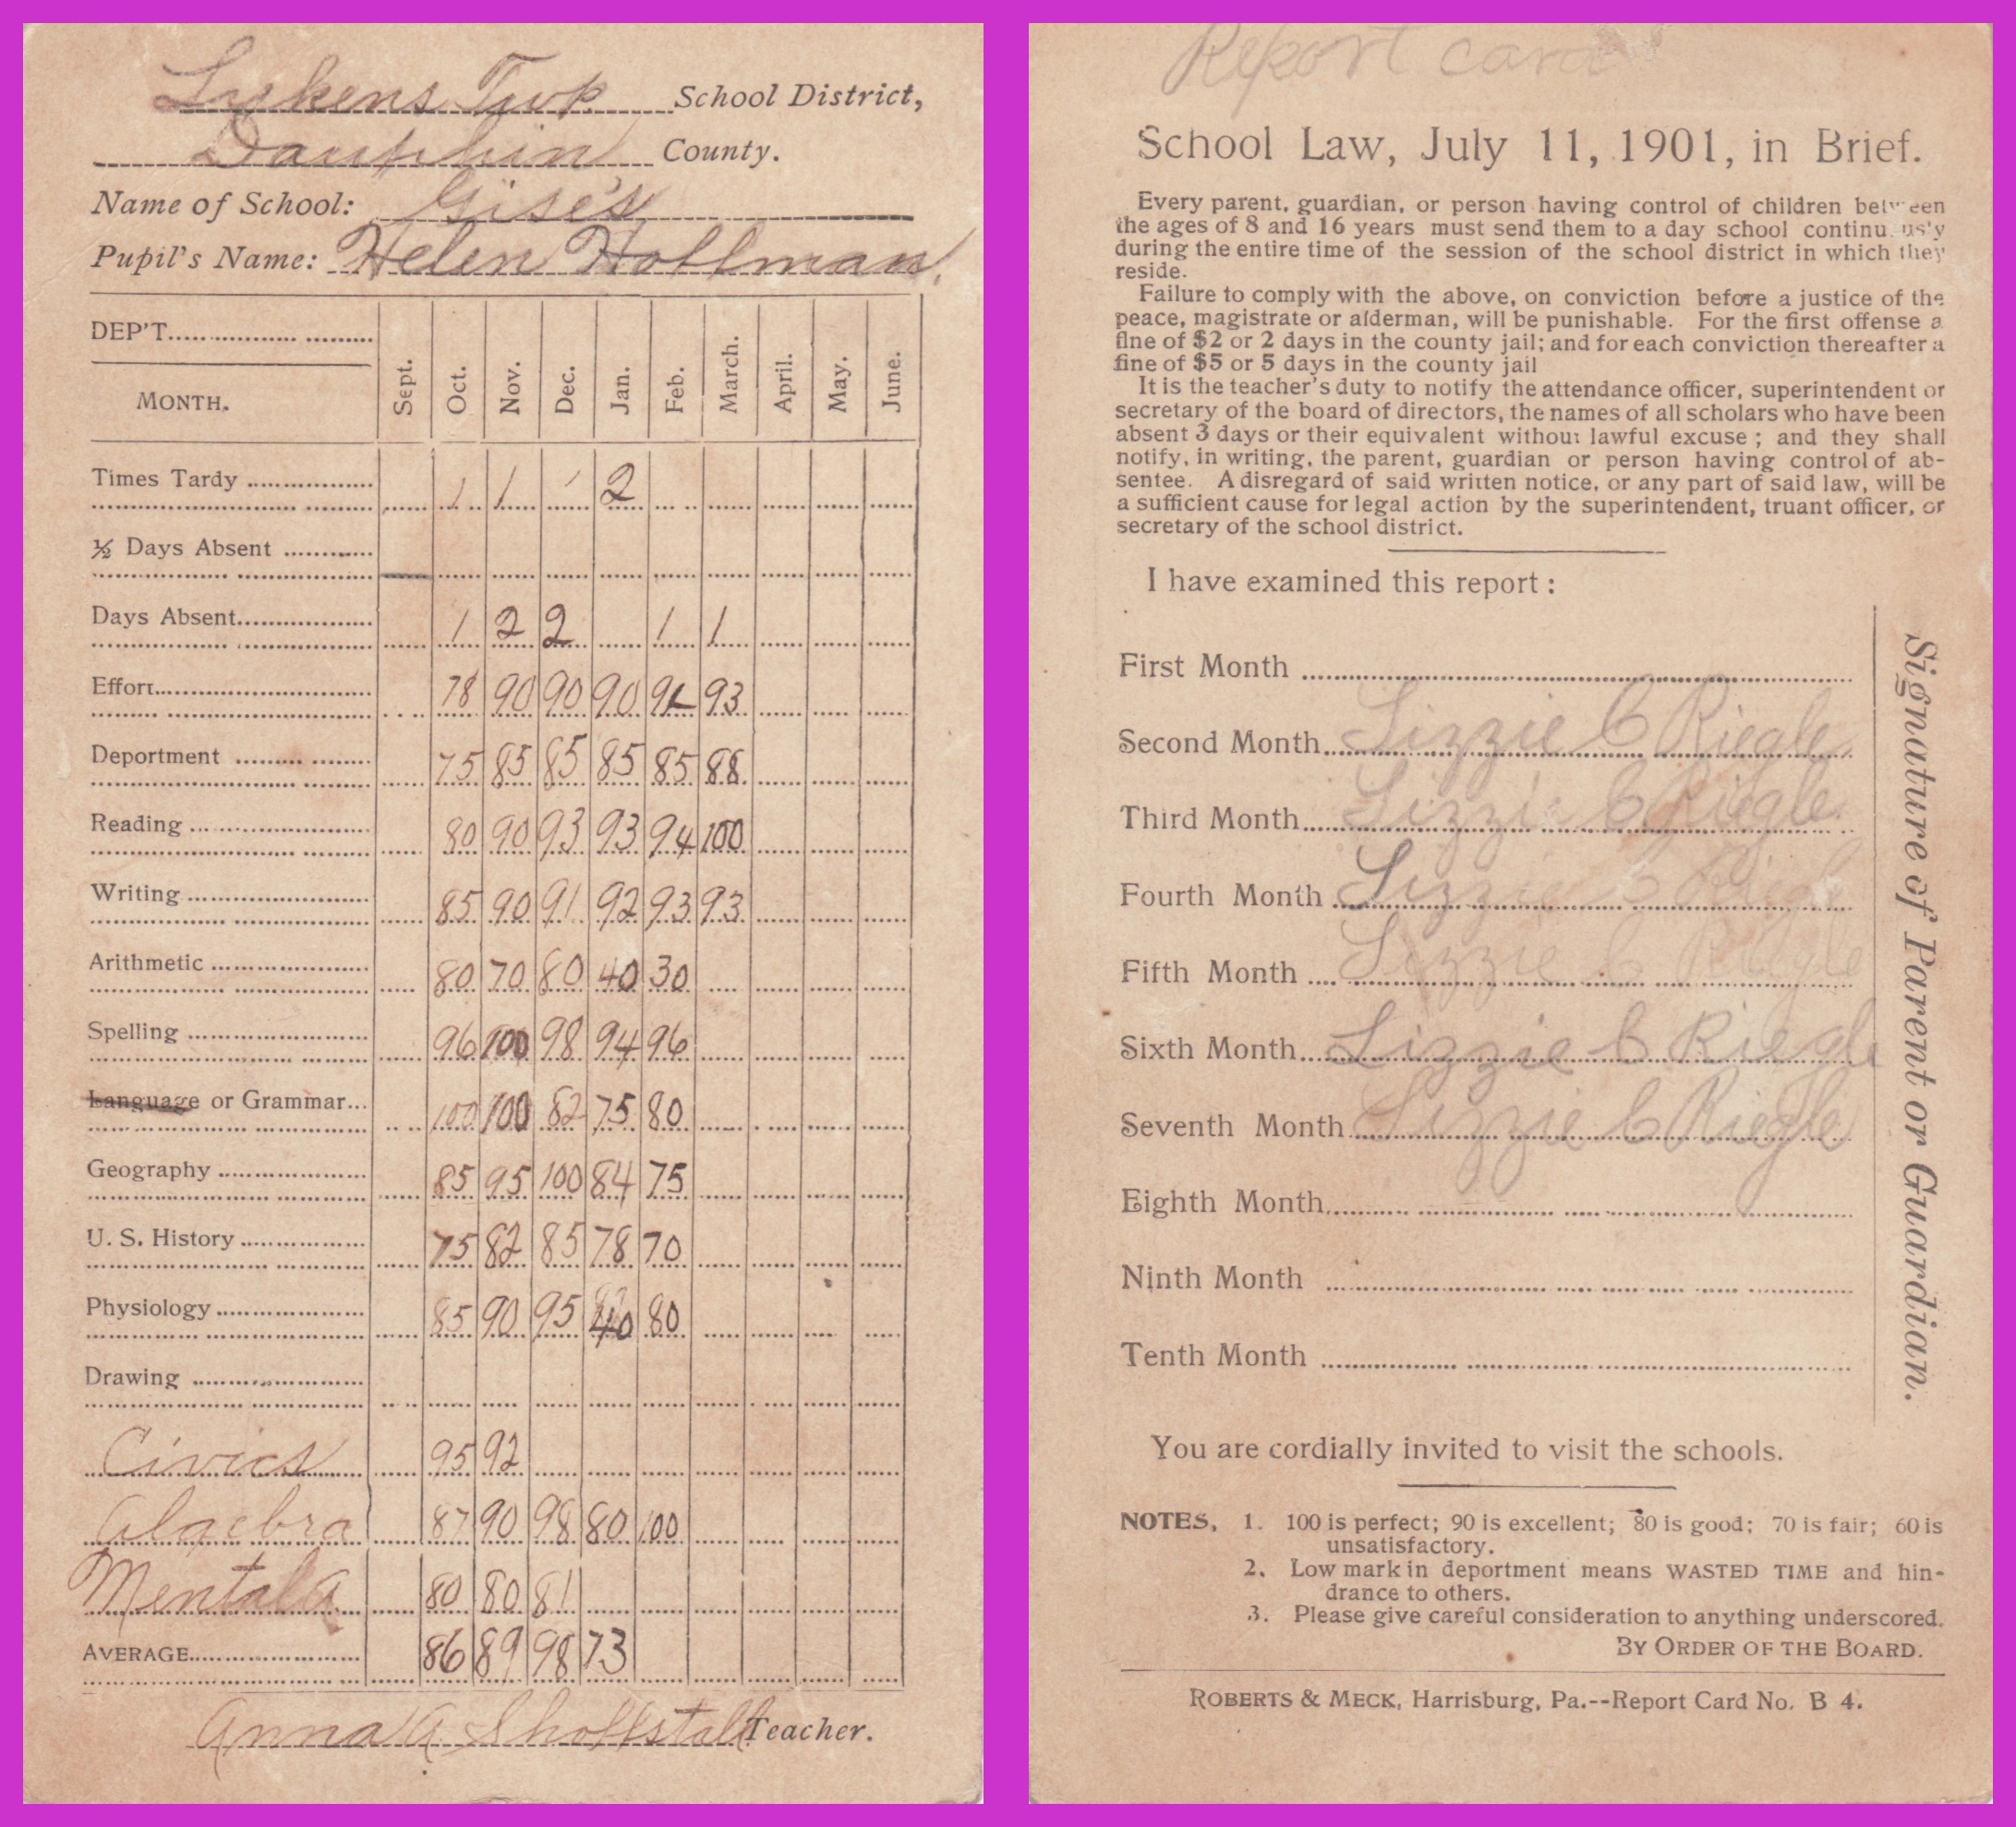 Lykens Twp. School District,
Dauphin County.
Name of School: Gise's
Pupil's Name: Helen Hoffman.
DEP'T
MONTH. Sept. Oct. Nov. Dec. Jan. Feb. March. April. May. June.
Times Tardy 1 1 1 2
½ Days Absent
Days Absent 1 2 2 1 1
Effort 78 90 90 90 92 93
Deportment 75 85 85 85 85 88
Reading 80 90 93 93 94 100
Writing 85 90 91 92 93 93
Arithmetic 80 70 80 40 30
Spelling 96 100 98 94 96
Language or Grammar 100 100 82 75 80
Geography 85 95 100 84 75
U. S. History 75 82 85 78 70
Physiology 85 90 95 40 80
Drawing
Civics 95 92
Algebra 87 90 98 80 100
Mental A 80 80 81
AVERAGE 86 89 98 73
Anna A Shoffstall Teacher.
Report card
School Law, July 11, 1901, in Brief.
Every parent, guardian, or person having control of children between
the ages of 8 and 16 years must send them to a day school continuously
during the entire time of the session of the school district in which they
reside.
Failure to comply with the above, on conviction before a justice of the
peace, magistrate or alderman, will be punishable. For the first offense a
fine of $2 or 2 days in the county jail; and for each conviction thereafter a
fine of $5 or 5 days in the county jail
It is the teacher's duty to notify the attendance officer, superintendent or
secretary of the board of directors, the names of all scholars who have been
absent 3 days or their equivalent without lawful excuse; and they shall
notify, in writing, the parent, guardian or person having control of ab-
sentee. A disregard of said written notice, or any part of said law, will be
a sufficient cause for legal action by the superintendent, truant officer, or
secretary of the school district.
I have examined this report:
First Month
Second Month Lizzie C Riegle
Third Month Lizzie C Riegle
Fourth Month Lizzie C Riegle
Fifth Month Lizzie C Riegle
Sixth Month Lizzie C Riegle
Seventh Month Lizzie C Riegle
Eighth Month
Ninth Month
Tenth Month
Signature of Parent or Guardian.
You are cordially invited to visit the schools.
NOTES, 1. 100 is perfect; 90 is excellent; 80 is good; 70 is fair; 60 is
unsatisfactory.
2. Low mark in deportment means WASTED TIME and hin-
drance to others.
3. Please give careful consideration to anything underscored.
BY ORDER OF THE BOARD.
ROBERTS & MECK, Harrisburg, Pa.--Report Card No. B 4.